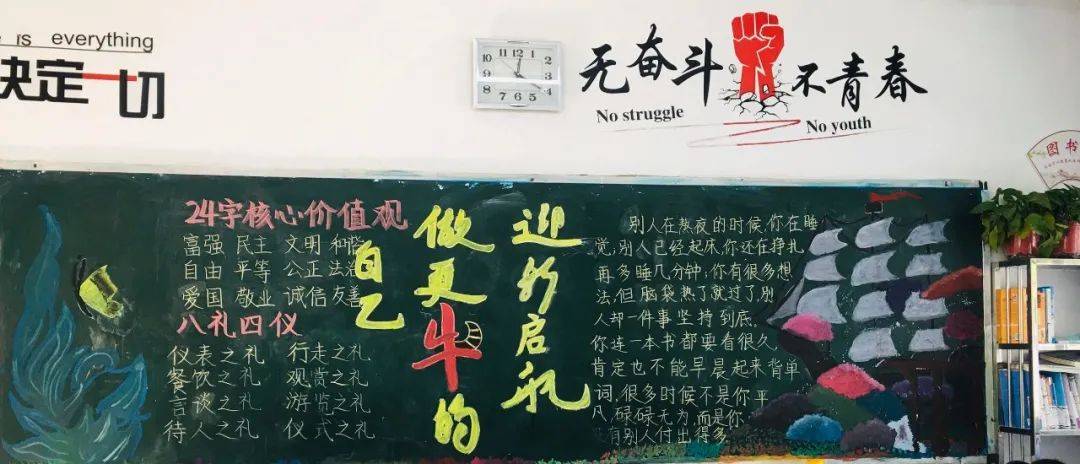 is everything
决定一切
12
11
1
10
2
9
3
8
4
7
5
6
无奋斗
不青春
No struggle
No youth
图书
24字核心价值观
富强 民主 文明 和谐
自由 平等 公正 法治
爱国 敬业 诚信 友善
八礼四仪
仪表之礼 行走之礼
餐饮之礼 观赏之礼
言谈之礼 游览之礼
待人之礼 仪式之礼
迎新启航
做更牛的
自己
别人在熬夜的时候,你在睡
觉;别人已经起床,你还在挣扎
再多睡几分钟;你有很多想
法,但脑袋热了就过了,别
人却一件事坚持到底。
你连一本书都要看很久,
肯定也不能早晨起来背单
词,很多时候不是你平
凡,碌碌无为,而是你
没有别人付出得多。